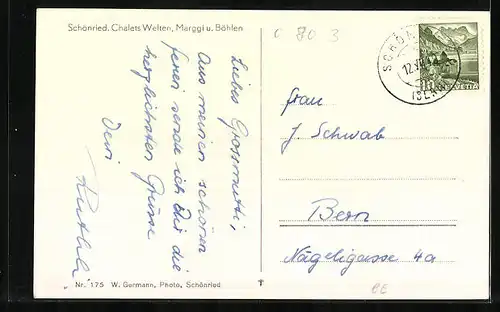 Schönried. Chalets Welten, Marggi u. Böhlen
Liebes Grossmutti,
Aus meinen schönen
ferien sende ich Dir die
herzlichsten Grüsse
Dein
Ruthli
Nr. 175 W. Germann, Photo, Schönried
C 80 3
HELVETIA
Frau
J. Schwab
Bern
Nägeligasse 4a